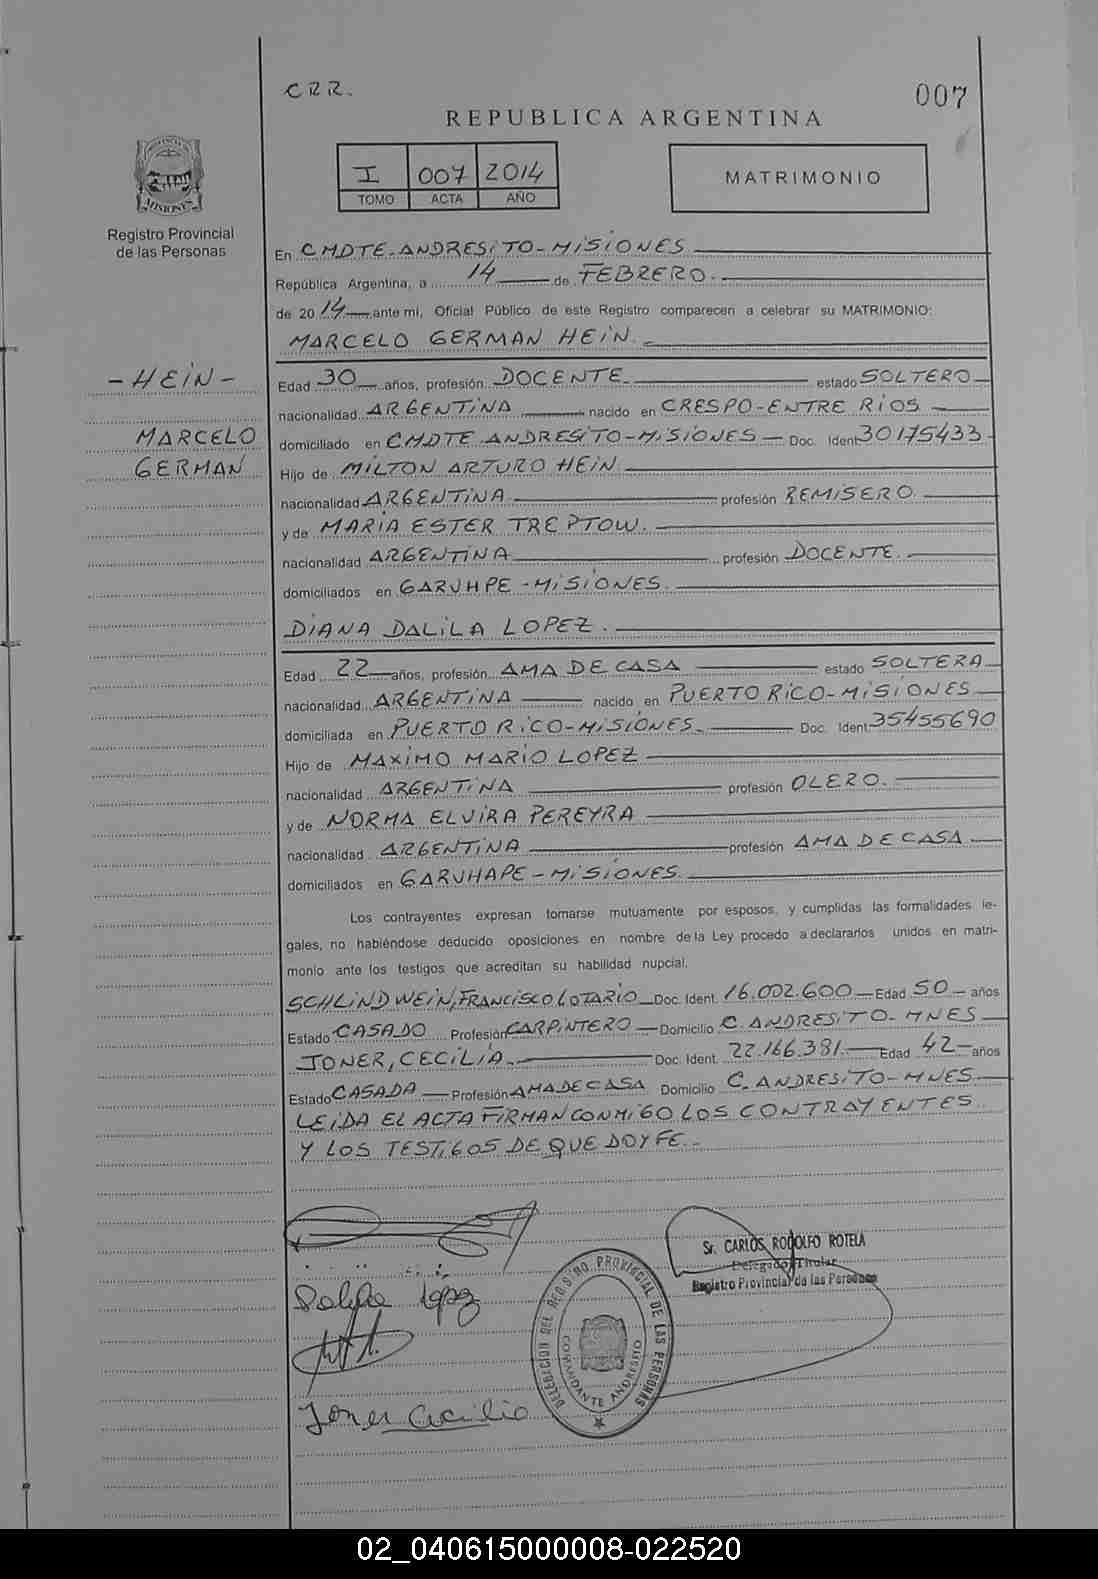 CRR.
007
REPUBLICA ARGENTINA
I 007 2014
TOMO ACTA AÑO
MATRIMONIO
MISIONES
Registro Provincial
de las Personas
En CMDTE-ANDRESiTO-MiSiONES
República Argentina, a 14 de FEBRERO.
de 2014 ante mi, Oficial Público de este Registro comparecen a celebrar su MATRIMONIO:
MARCELO GERMAN HEiN.
-HEiN-
MARCELO
GERMAN
Edad 30 años, profesión DOCENTE estado SOLTERO
nacionalidad ARGENTiNA nacido en CRESPO-ENTRE RiOS
domiciliado en CMDTE ANDRESiTO-MiSiONES Doc. Ident 30175433
Hijo de MiLTON ARTURO HEiN
nacionalidad ARGENTiNA profesión REMiSERO
y de MARiA ESTER TREPTOW.
nacionalidad ARGENTiNA profesión DOCENTE.
domiciliados en GARUHPE-MiSiONES.
DiANA DALiLA LOPEZ.
Edad 22 años, profesión AMA DE CASA estado SOLTERA
nacionalidad ARGENTiNA nacido en PUERTO RiCO-MiSiONES
domiciliada en PUERTO RiCO-MiSiONES Doc. Ident. 35455690
Hijo de MAXiMO MARiO LOPEZ
nacionalidad ARGENTiNA profesión OLERO.
y de NORMA ELViRA PEREYRA
nacionalidad ARGENTiNA profesión AMA DE CASA
domiciliados en GARUHAPE-MiSiONES.
Los contrayentes expresan tomarse mutuamente por esposos, y cumplidas las formalidades le-
gales, no habiéndose deducido oposiciones en nombre de la Ley procedo a declararlos unidos en matri-
monio ante los testigos que acreditan su habilidad nupcial.
SCHLiNDWEiN, FRANCiSCO LOTARiO Doc. Ident. 16.002.600 Edad 50 años
Estado CASADO Profesión CARPiNTERO Domicilio C. ANDRESiTO-MNES
JONER, CECiLiA. Doc. Ident. 22.166.381. Edad 42 años
Estado CASADA Profesión AMA DE CASA Domicilio C. ANDRESiTO-MNES.
LEiDA EL ACTA FiRMAN CONMiGO LOS CONTRAYENTES
Y LOS TESTiGOS DE QUE DOY FE.
Sr. CARLOS RODOLFO ROTELA
Delegado Titular
Registro Provincial de las Personas
Dalila López
DELEGACION DEL REGISTRO PROVINCIAL DE LAS PERSONAS
COMANDANTE ANDRESITO
Joner Cecilia
02_040615000008-022520